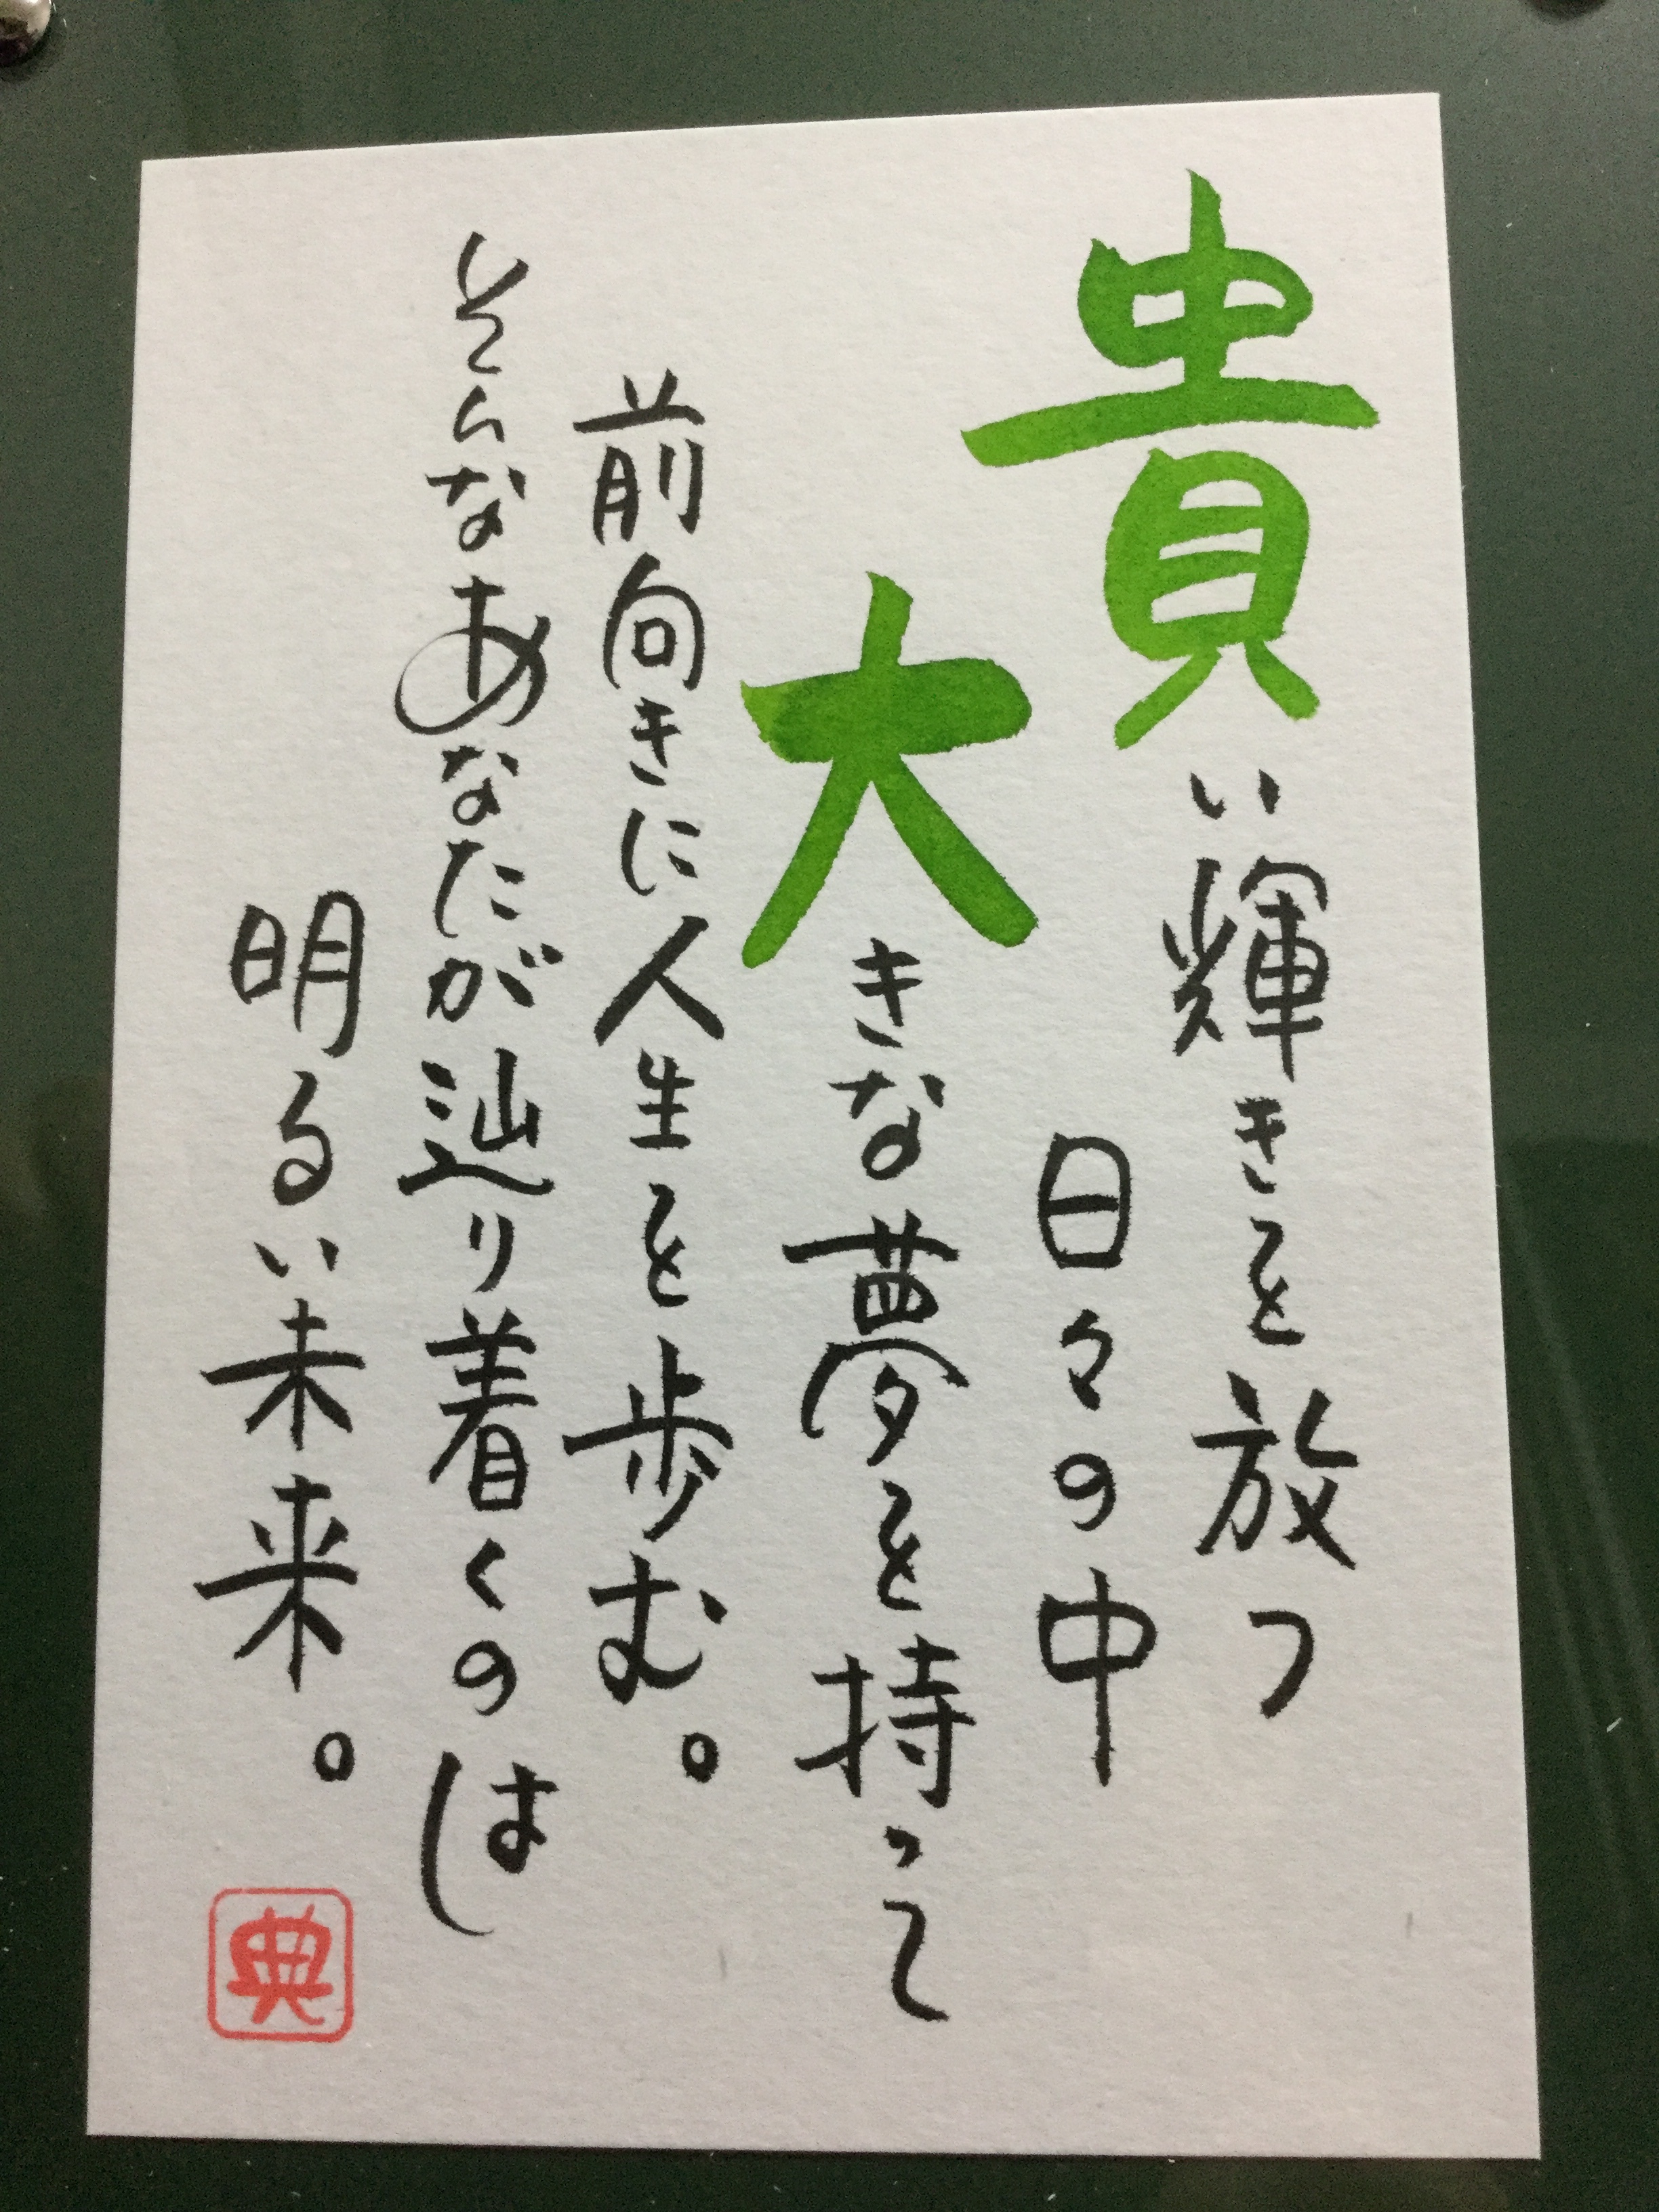 貴い輝きを放つ
日々の中
大きな夢を持って
前向きに人生を歩む。
そんなあなたが辿り着くのは
明るい未来。
典